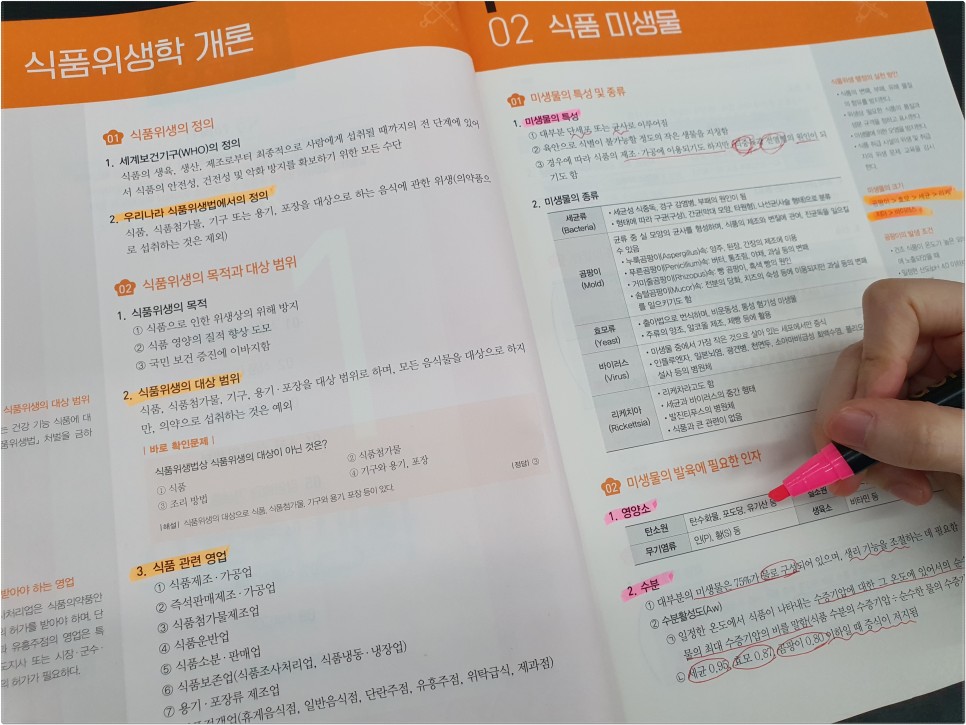 식품위생학 개론
01 식품위생의 정의
1. 세계보건기구(WHO)의 정의
식품의 생육, 생산, 제조로부터 최종적으로 사람에게 섭취될 때까지의 전 단계에 있어
서 식품의 안전성, 건전성 및 악화 방지를 확보하기 위한 모든 수단
2. 우리나라 식품위생법에서의 정의
식품, 식품첨가물, 기구 또는 용기, 포장을 대상으로 하는 음식에 관한 위생(의약품으
로 섭취하는 것은 제외)
02 식품위생의 목적과 대상 범위
1. 식품위생의 목적
① 식품으로 인한 위생상의 위해 방지
② 식품 영양의 질적 향상 도모
③ 국민 보건 증진에 이바지함
2. 식품위생의 대상 범위
식품, 식품첨가물, 기구, 용기·포장을 대상 범위로 하며, 모든 음식물을 대상으로 하지
만, 의약으로 섭취하는 것은 예외
| 바로 확인문제 |
식품위생법상 식품위생의 대상이 아닌 것은?
① 식품 ② 식품첨가물
③ 조리 방법 ④ 기구와 용기, 포장
(정답) ③
| 해설 | 식품위생의 대상으로 식품, 식품첨가물, 기구와 용기, 포장 등이 있다.
3. 식품 관련 영업
① 식품제조·가공업
② 즉석판매제조·가공업
③ 식품첨가물제조업
④ 식품운반업
⑤ 식품소분·판매업
⑥ 식품보존업(식품조사처리업, 식품냉동·냉장업)
⑦ 용기·포장류 제조업
(휴게음식점, 일반음식점, 단란주점, 유흥주점, 위탁급식, 제과점)
식품위생의 대상 범위
는 건강 기능 식품에 대
품위생법」 처벌을 금하
받아야 하는 영업
사처리업은 식품의약품안
의 허가를 받아야 하며, 단
과 유흥주점의 영업은 특
도지사 또는 시장·군수·
의 허가가 필요하다.
02 식품 미생물
01 미생물의 특성 및 종류
1. 미생물의 특성
① 대부분 단세포 또는 균사로 이루어짐
② 육안으로 식별이 불가능할 정도의 작은 생물을 지칭함
③ 경우에 따라 식품의 제조·가공에 이용되기도 하지만 식중독과 전염병의 원인이 되
기도 함
2. 미생물의 종류
세균류
(Bacteria)
• 세균성 식중독, 경구 감염병, 부패의 원인이 됨
• 형태에 따라 구균(구상), 간균(막대 모양, 타원형), 나선균(사슬 형태)으로 분류
곰팡이
(Mold)
균류 중 실 모양의 균사를 형성하며, 식품의 제조와 변질에 관여, 진균독을 일으킬
수 있음
• 누룩곰팡이(Aspergillus)속: 양주, 된장, 간장의 제조에 이용
• 푸른곰팡이(Penicillium)속: 버터, 통조림, 야채, 과실 등의 변패
• 거미줄곰팡이(Rhizopus)속: 빵 곰팡이, 흑색 빵의 원인
• 솜털곰팡이(Mucor)속: 전분의 당화, 치즈의 숙성 등에 이용되지만 과실 등의 변패
를 일으키기도 함
효모류
(Yeast)
• 출아법으로 번식하며, 비운동성, 통성 혐기성 미생물
• 주류의 양조, 알코올 제조, 제빵 등에 활용
바이러스
(Virus)
• 미생물 중에서 가장 작은 것으로 살아 있는 세포에서만 증식
• 인플루엔자, 일본뇌염, 광견병, 천연두, 소아마비(급성 회백수염, 폴리오
설사 등의 병원체
리케차아
(Rickettsia)
• 리케차라고도 함
• 세균과 바이러스의 중간 형태
• 발진티푸스의 병원체
• 식품과 큰 관련이 없음
02 미생물의 발육에 필요한 인자
1. 영양소
탄소원 탄수화물, 포도당, 유기산 등 질소원
무기염류 인(P), 황(S) 등 생육소 비타민 등
2. 수분
① 대부분의 미생물은 75%가 물로 구성되어 있으며, 생리 기능을 조절하는 데 필요함
② 수분활성도(Aw)
㉠ 일정한 온도에서 식품이 나타내는 수증기압에 대한 그 온도에 있어서의 순수
물의 최대 수증기압의 비를 말함(식품 수분의 수증기압÷순수한 물의 수증기
㉡ 세균 0.95, 효모 0.87, 곰팡이 0.80 이하일 때 증식이 저지됨
식품위생 행정의 실천 방안
• 식품의 변패, 부패, 유해 물질
의 함유를 방지한다.
미생물의 크기
곰팡이 > 효모 > 세균 > 리케
차아 > 바이러스
곰팡이의 발생 조건